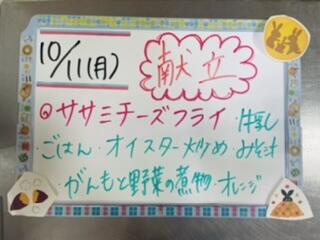 10/11(月)
献立
◎ササミチーズフライ・牛乳
・ごはん・オイスター炒め・みそ汁
・がんもと野菜の煮物・オレンジ